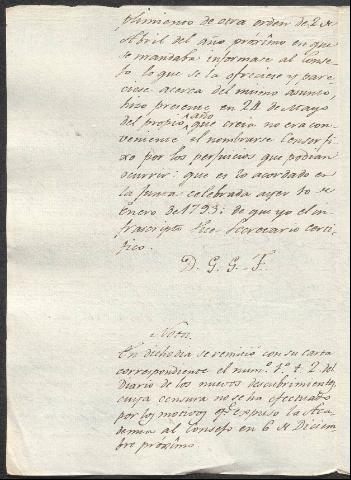 plimiento de otra orden de 2 de
Abril del año próximo en que
se mandaba informase al Conse-
jo lo que se la ofreciese y pare-
ciese acerca del mismo asunto,
hizo presente en 24 de Mayo
del propio año que creia no era con-
veniente el nombrarse Censor fi-
xo por los perjuicios que podian
ocurrir: que es lo acordado en
la Junta celebrada ayer 10 de
Enero de 1793: de que yo el in-
frascripto Vice Secretario certi-
fico.
D. G. G. F.
Nota.
En dicho dia se remitió con su carta
correspondiente el num.º 1.º t. 2 del
Diario de los nuevos descubrimientos,
cuya censura no se ha efectuado
por los motivos q.e expuso la Aca-
demia al Consejo en 6 de Diciem-
bre próximo.